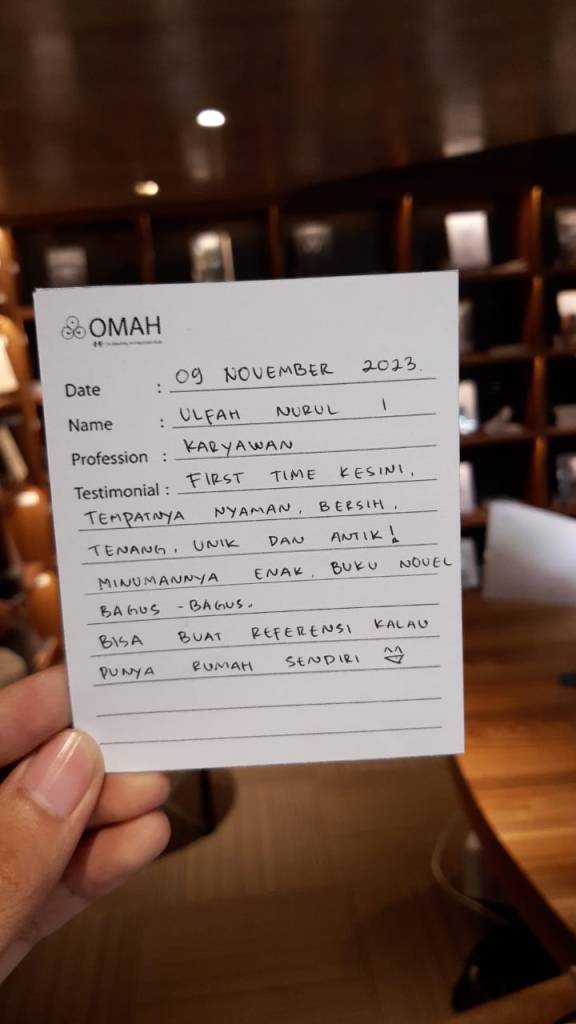 OMAH
Date : 09 NOVEMBER 2023.
Name : ULFAH NURUL I
Profession : KARYAWAN
Testimonial : FIRST TIME KESINI,
TEMPATNYA NYAMAN, BERSIH,
TENANG, UNIK DAN ANTIK!
MINUMANNYA ENAK, BUKU NOVEL
BAGUS - BAGUS.
BISA BUAT REFERENSI KALAU
PUNYA RUMAH SENDIRI